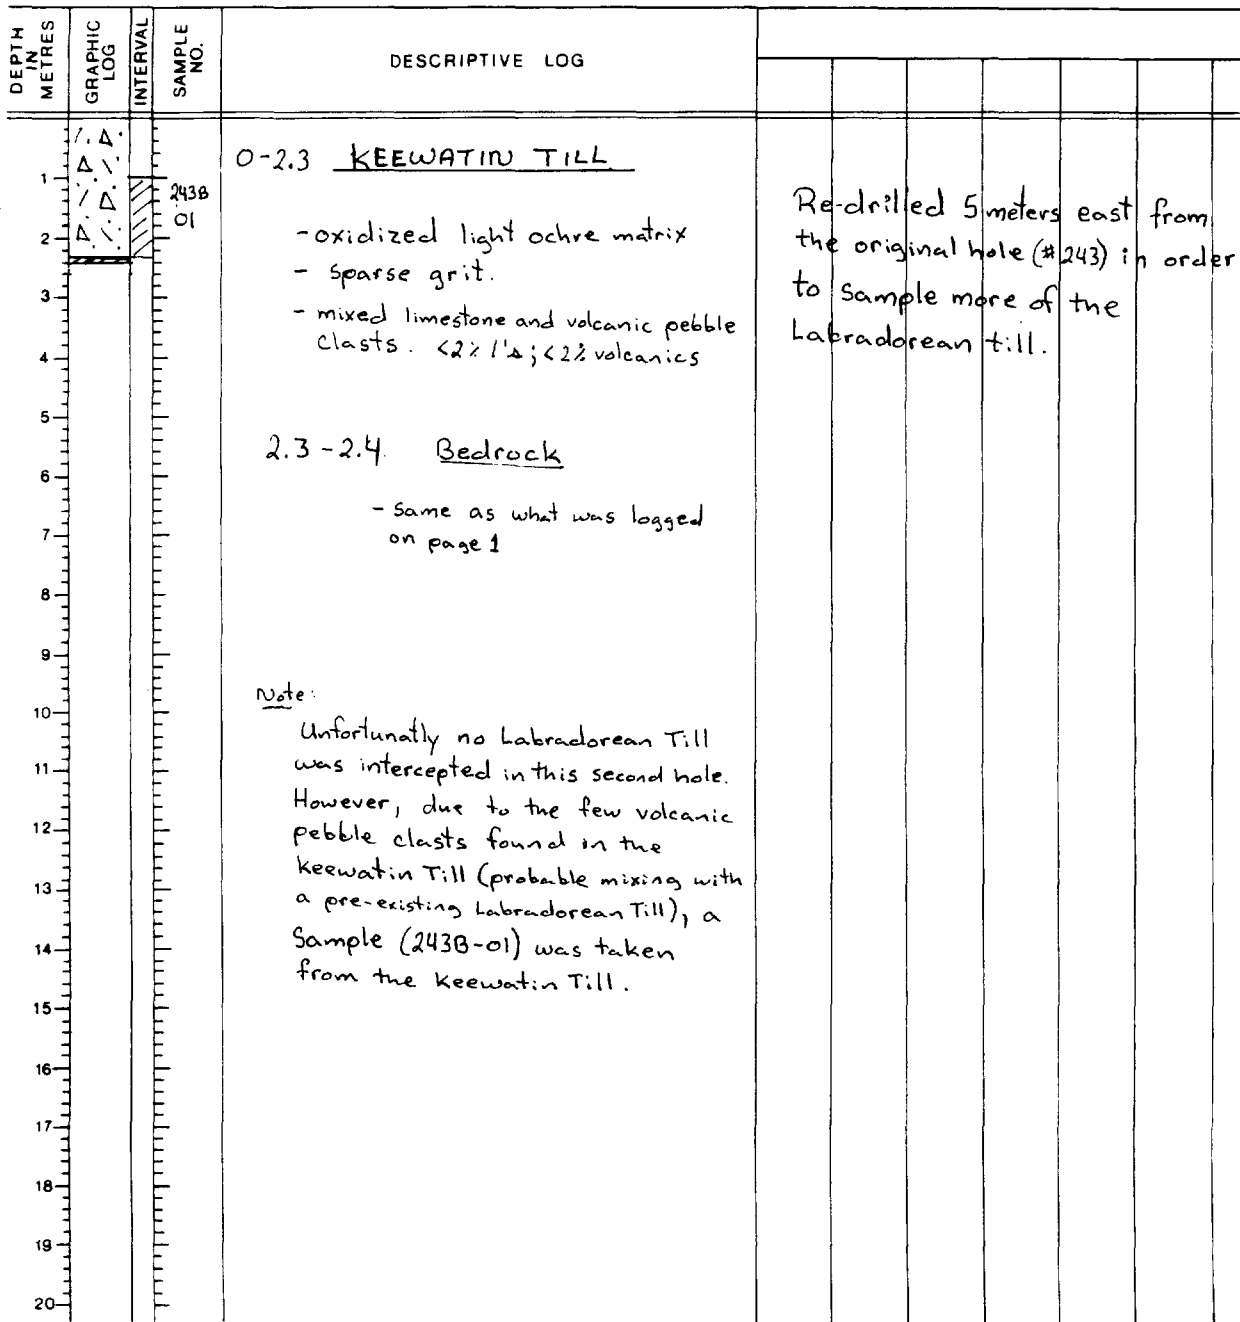 DEPTH IN METRES
GRAPHIC LOG
INTERVAL
SAMPLE NO.
DESCRIPTIVE LOG
0-2.3 KEEWATIN TILL
- oxidized light ochre matrix
- sparse grit.
- mixed limestone and volcanic pebble
clasts. <2% l's; <2% volcanics
2.3-2.4. Bedrock
- Same as what was logged
on page 1
Note:
Unfortunatly no Labradorean Till
was intercepted in this second hole.
However, due to the few volcanic
pebble clasts found in the
Keewatin Till (probable mixing with
a pre-existing Labradorean Till), a
Sample (243B-01) was taken
from the Keewatin Till.
243B
01
Re-drilled 5 meters east from
the original hole (#243) in order
to sample more of the
Labradorean till.
1
2
3
4
5
6
7
8
9
10
11
12
13
14
15
16
17
18
19
20